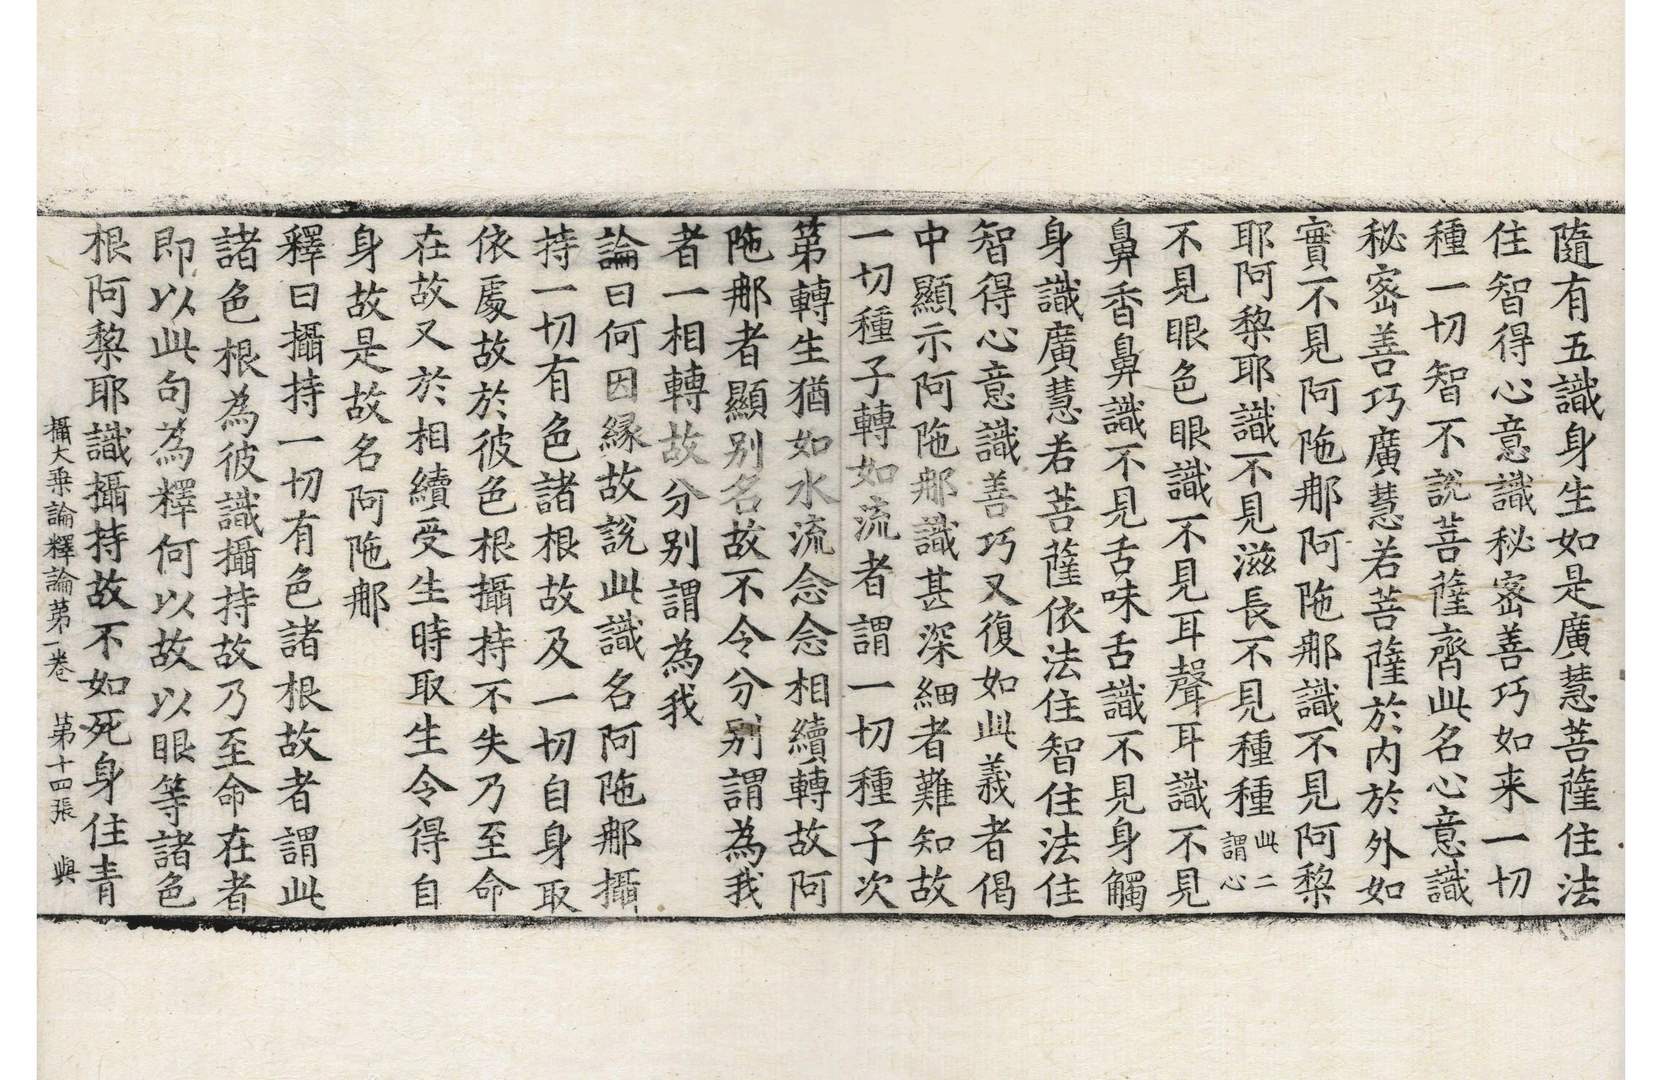 隨有五識身生如是廣慧菩薩住法
住智得心意識秘宻善巧如来一切
種一切智不說菩薩齊此名心意識
秘宻善巧廣慧若菩薩於内於外如
實不見阿陁那阿陁那識不見阿棃
耶阿棃耶識不見滋長不見種種此二謂心
不見眼色眼識不見耳聲耳識不見
鼻香鼻識不見舌味舌識不見身觸
身識廣慧若菩薩依法住智住法住
智得心意識善巧又復如此義者偈
中顯示阿陁那識甚深細者難知故
一切種子轉如流者謂一切種子次
第轉生猶如水流念念相續轉故阿
陁那者顯别名故不令分别謂為我
者一相轉故分别謂為我
論曰何因縁故說此識名阿陁那攝
持一切有色諸根故及一切自身取
依處故於彼色根攝持不失乃至命
在故又於相續受生時取生令得自
身故是故名阿陁那
釋曰攝持一切有色諸根故者謂此
諸色根為彼識攝持故乃至命在者
即以此句為釋何以故以眼等諸色
根阿棃耶識攝持故不如死身住青
攝大乗論釋論第一卷　第十四張　與